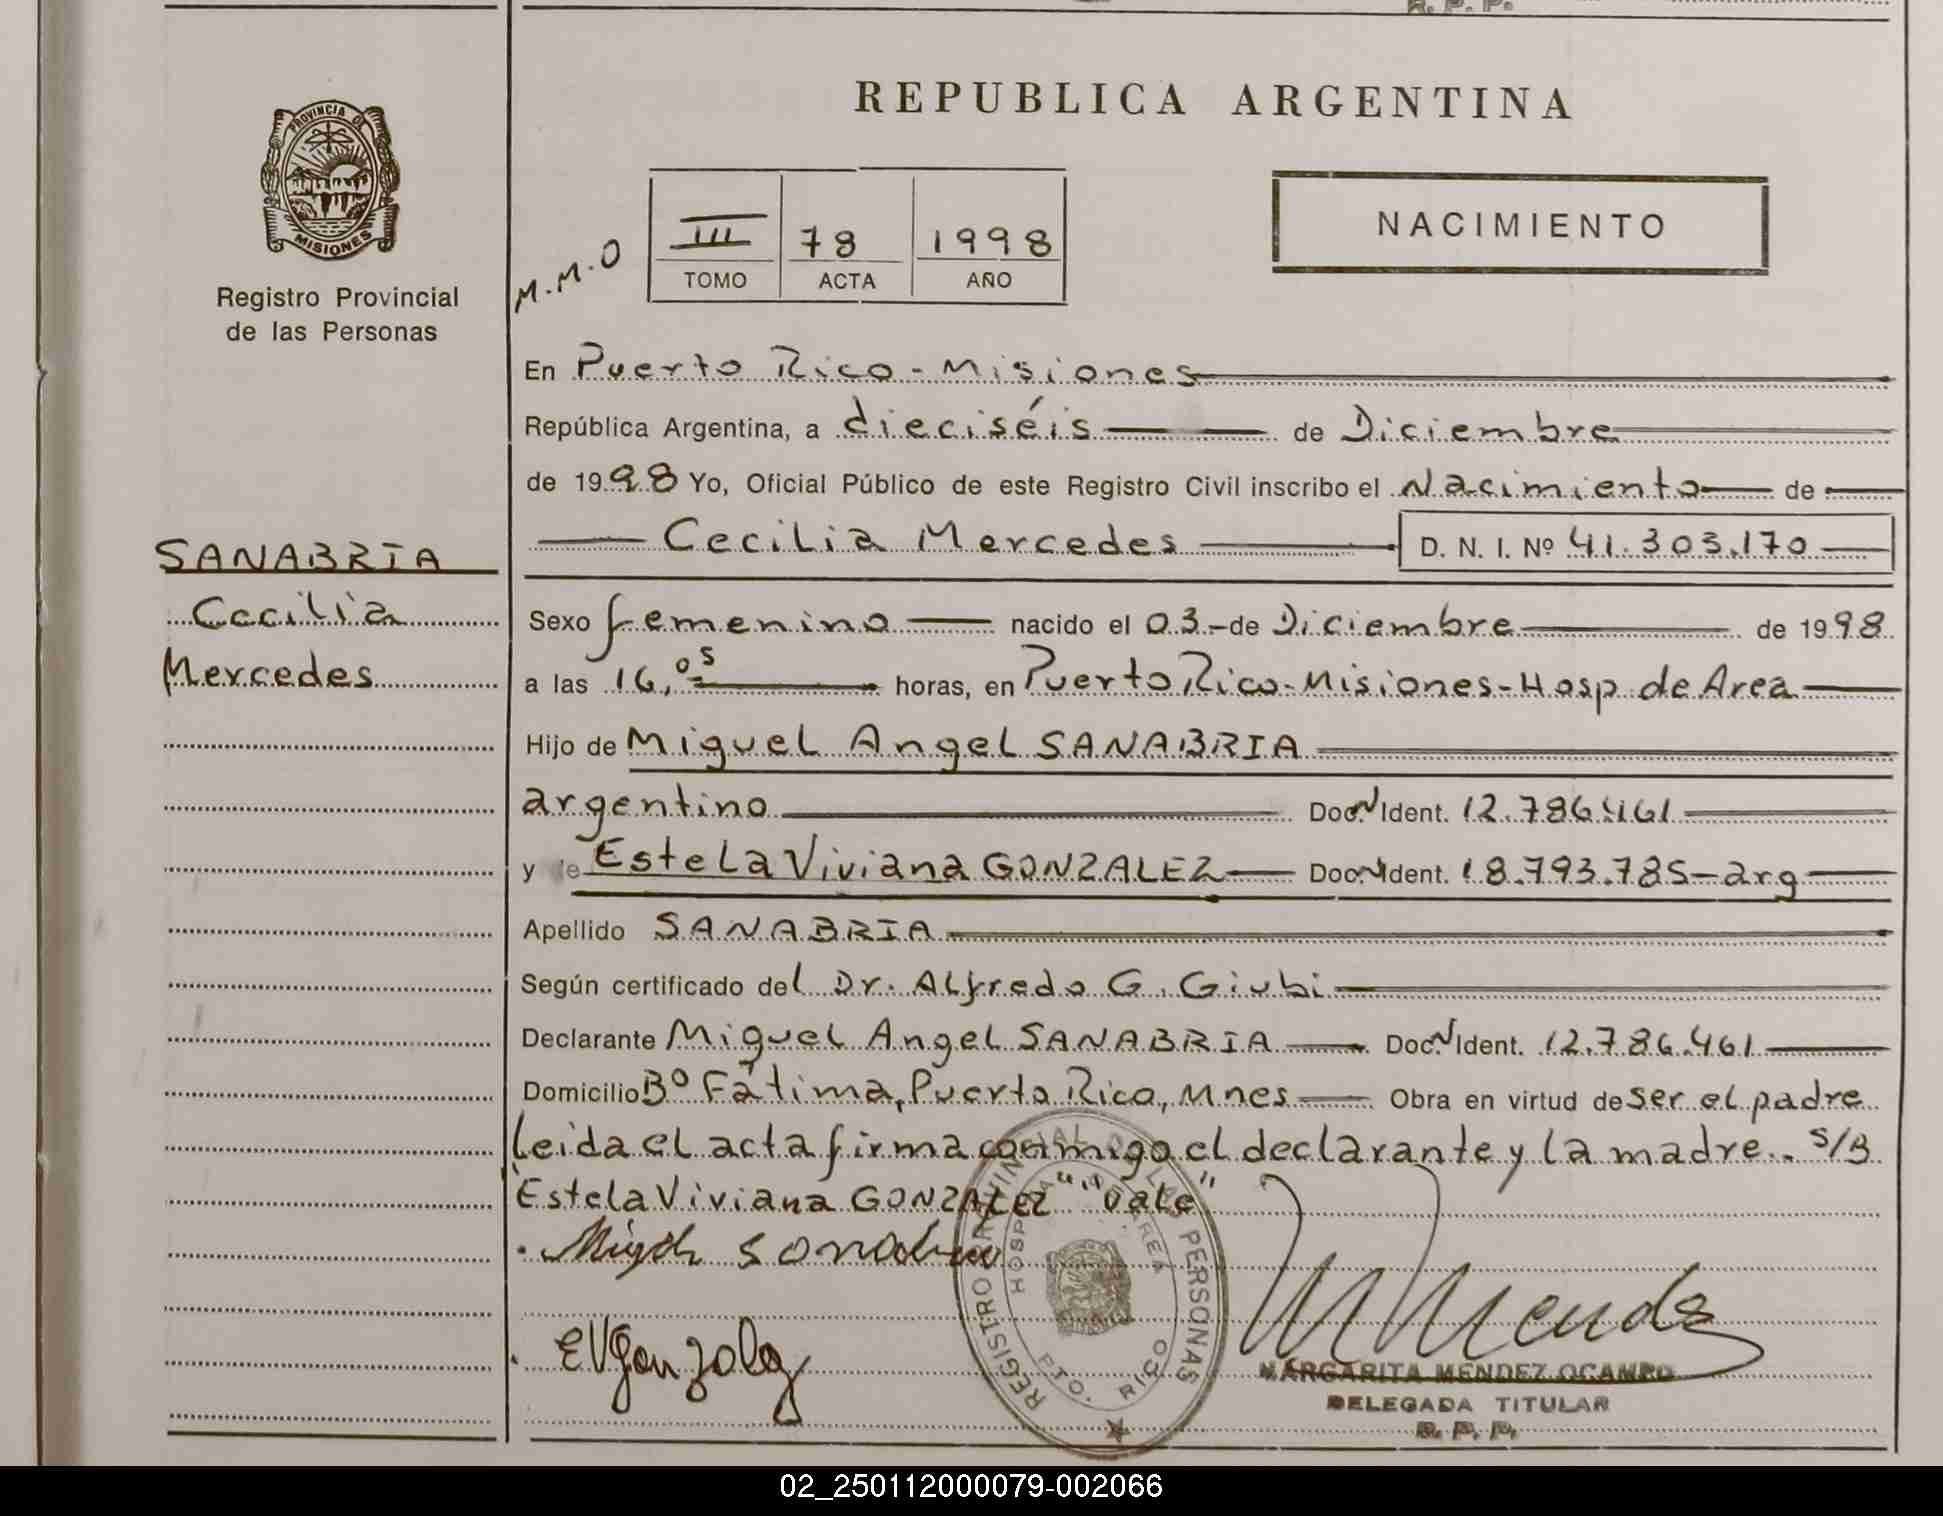 R. P. P.
PROVINCIA DE
MISIONES
Registro Provincial
de las Personas
REPUBLICA ARGENTINA
NACIMIENTO
M.M.O
III 78 1998
TOMO ACTA AÑO
En Puerto Rico - Misiones
República Argentina, a dieciséis de Diciembre
de 1998 Yo, Oficial Público de este Registro Civil inscribo el Nacimiento de
Cecilia Mercedes D. N. I. Nº 41.303.170
SANABRIA
Cecilia
Mercedes
Sexo femenino nacido el 03 - de Diciembre de 1998
a las 16,05 horas, en Puerto Rico - Misiones - Hosp. de Area
Hijo de Miguel Angel SANABRIA
argentino Doc. N Ident. 12.786.461
y de Estela Viviana GONZALEZ Doc. N Ident. 18.793.785 - arg
Apellido SANABRIA
Según certificado del Dr. Alfredo G. Giubi
Declarante Miguel Angel SANABRIA Doc. N Ident. 12.786.461
Domicilio Bº Fátima, Puerto Rico, Mnes Obra en virtud de ser el padre
Leida el acta firma conmigo el declarante y la madre.. S/B
Estela Viviana GONZALEZ "Vale"
EVGonzalez
REGISTRO PROVINCIAL DE LAS PERSONAS
HOSPITAL AREA
PTO. RICO
MARGARITA MENDEZ OCAMPO
DELEGADA TITULAR
R. P. P.
02_250112000079-002066